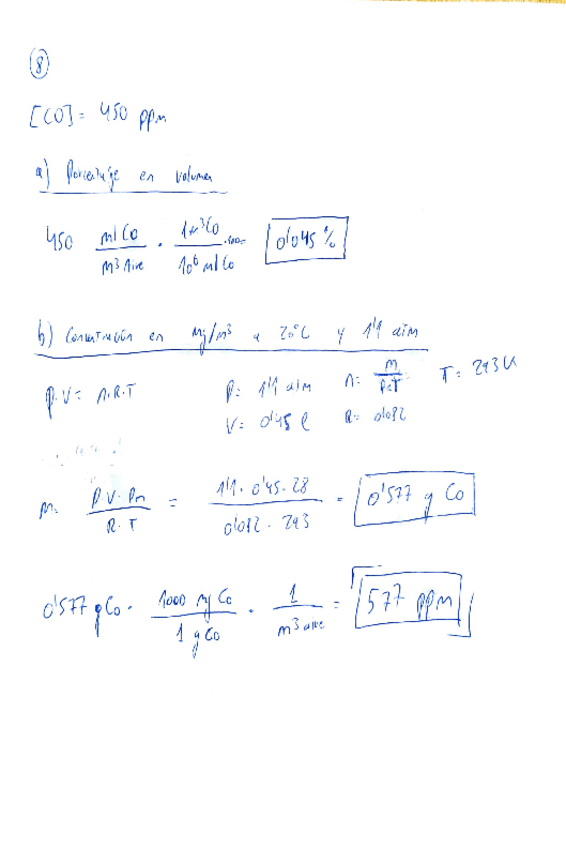 8
[CO] = 450 ppm
a) Porcentaje en volumen
450 ml CO / m³ Aire · 1 m³ CO / 10⁶ ml CO · 100 = 0'045 %
b) Concentración en mg/m³ a 20°C y 1'1 atm
P·V = n·R·T P = 1'1 atm n = m / T = 293 K
V = 0'45 l R = 0'082
m = P·V·Pm / R·T = 1'1 · 0'45 · 28 / 0'082 · 293 = 0'577 g CO
0'577 g CO · 1000 mg CO / 1 g CO · 1 / m³ aire = 577 ppm